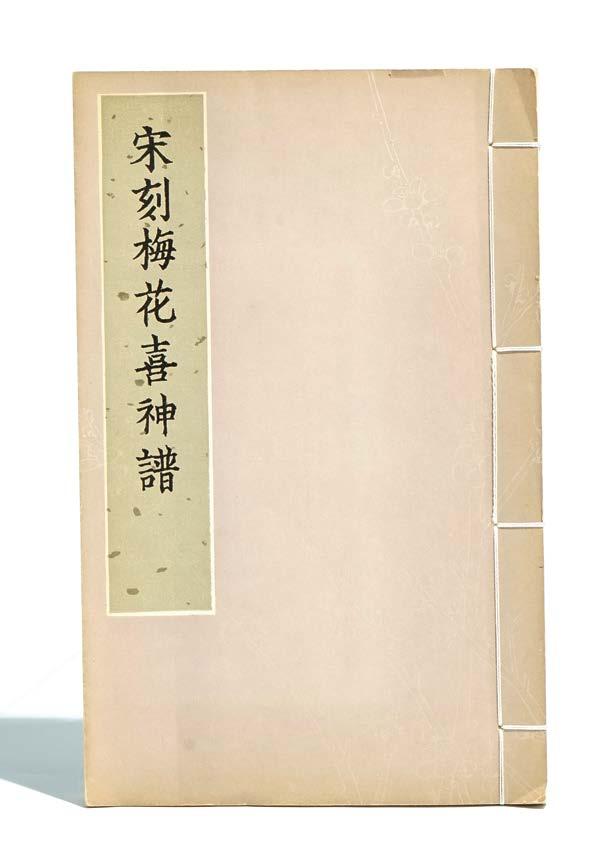 宋刻梅花喜神譜